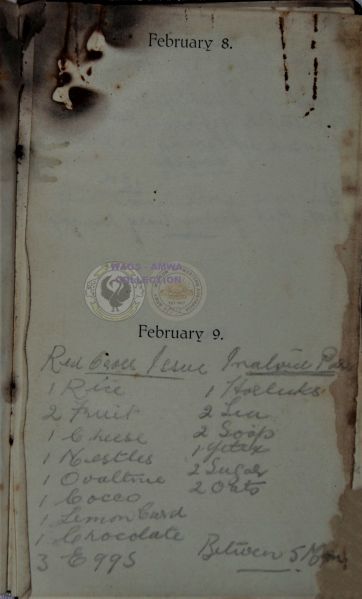 February 8.
WAGS - AMWA
COLLECTION
February 9.
Red Cross Issue Invalid Par
1 Rice 1 Horlicks
2 Fruit 2
1 Cheese 2 Soap
1 Nestles 1
1 Ovaltine 2 Sugar
1 Cocco 2 Oats
1 Lemon Curd
1 Chocolate
3 Eggs Between 5 Men